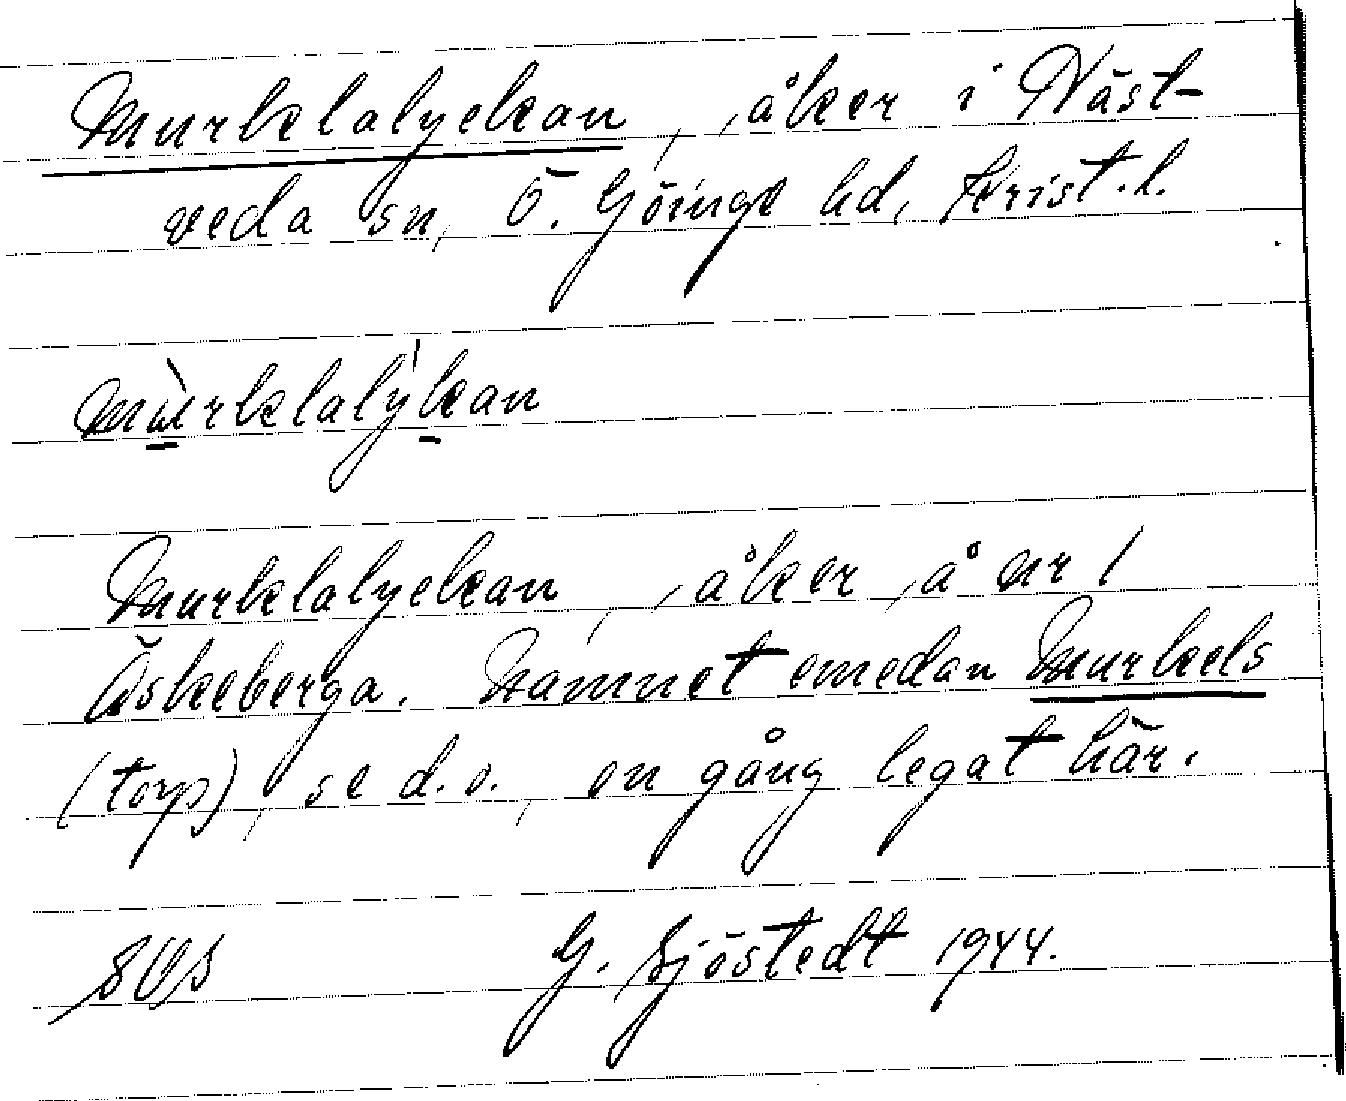 Murklalyckan, åker i Näst-
veda sn, Ö. Göinge hd, Krist. l.
mùrklalýkan
Murklalyckan, åker å nr 1
Äskeberga. Namnet emedan Murkels
(torp), se d. o., en gång legat här.
G. Sjöstedt 1944.